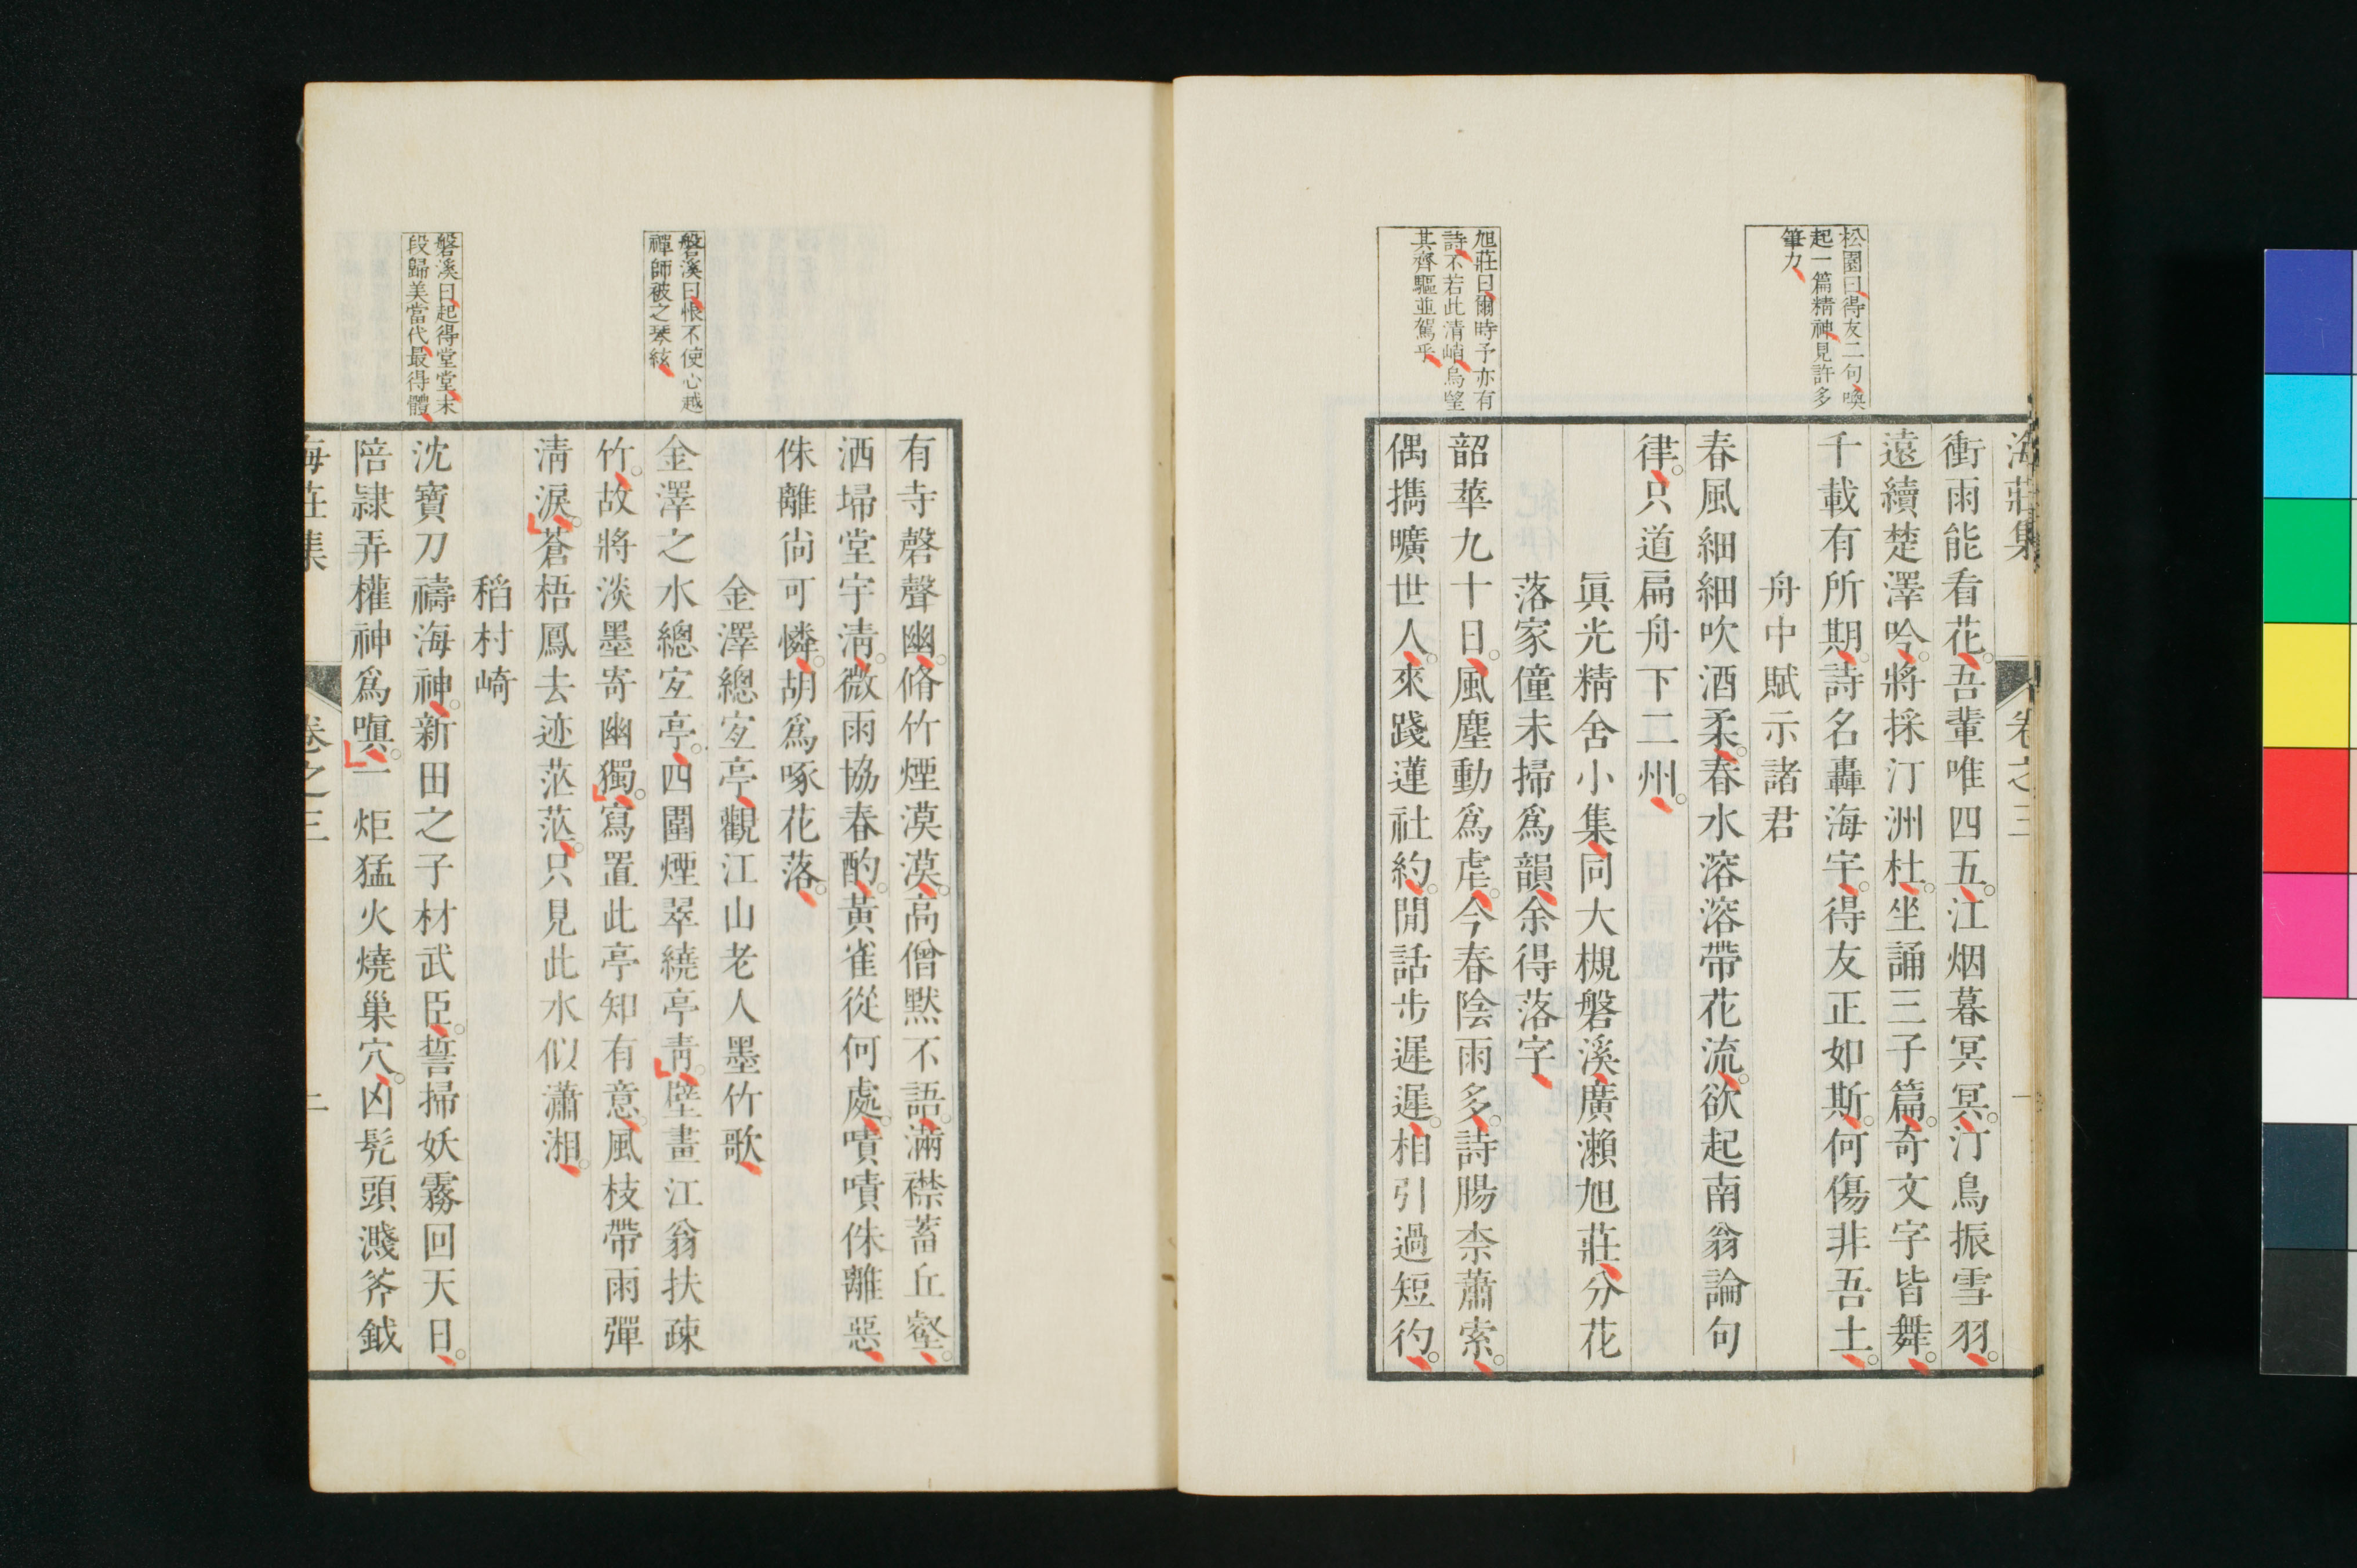 松園曰得友二句喚
起一篇精神見許多
筆力
旭莊曰爾時予亦有
詩不若此清峭烏望
其齊驅並駕乎
海莊集 卷之三
衝雨能看花。吾輩唯四五。江烟暮冥冥。汀鳥振雪羽。
遠續楚澤吟。將採汀洲杜。坐誦三子篇。奇文字皆舞。
千載有所期。詩名轟海宇。得友正如斯。何傷非吾土。
舟中賦示諸君
春風細細吹酒柔。春水溶溶帶花流。欲起南翁論句
律。只道扁舟下二州。
眞光精舍小集同大槻磐溪廣瀨旭莊分花
落家僮未掃爲韻余得落字
韶華九十日。風塵動爲虐。今春陰雨多。詩腸柰蕭索。
偶攜曠世人。來踐蓮社約。閒話步遲遲。相引過短彴。
磐溪曰恨不使心越
禪師被之琴絃
磐溪曰起得堂堂末
段歸美當代最得體
有寺磬聲幽。脩竹煙漠漠。高僧默不語。滿襟蓄丘壑。
洒埽堂宇淸。微雨協春酌。黃雀從何處。嘖嘖侏離惡
侏離尙可憐。胡爲啄花落。
金澤總宜亭觀江山老人墨竹歌
金澤之水總宜亭。四圍煙翠繞亭靑。壁畫江翁扶疎
竹。故將淡墨寄幽獨。寫置此亭知有意。風枝帶雨彈
淸淚。蒼梧鳳去迹茫茫。只見此水似瀟湘。
稻村崎
沈寶刀禱海神。新田之子材武臣。誓掃妖霧回天日。
陪隷弄權神爲嗔。一炬猛火燒巢穴。凶髠頭濺斧鉞
海莊集 卷之三 二